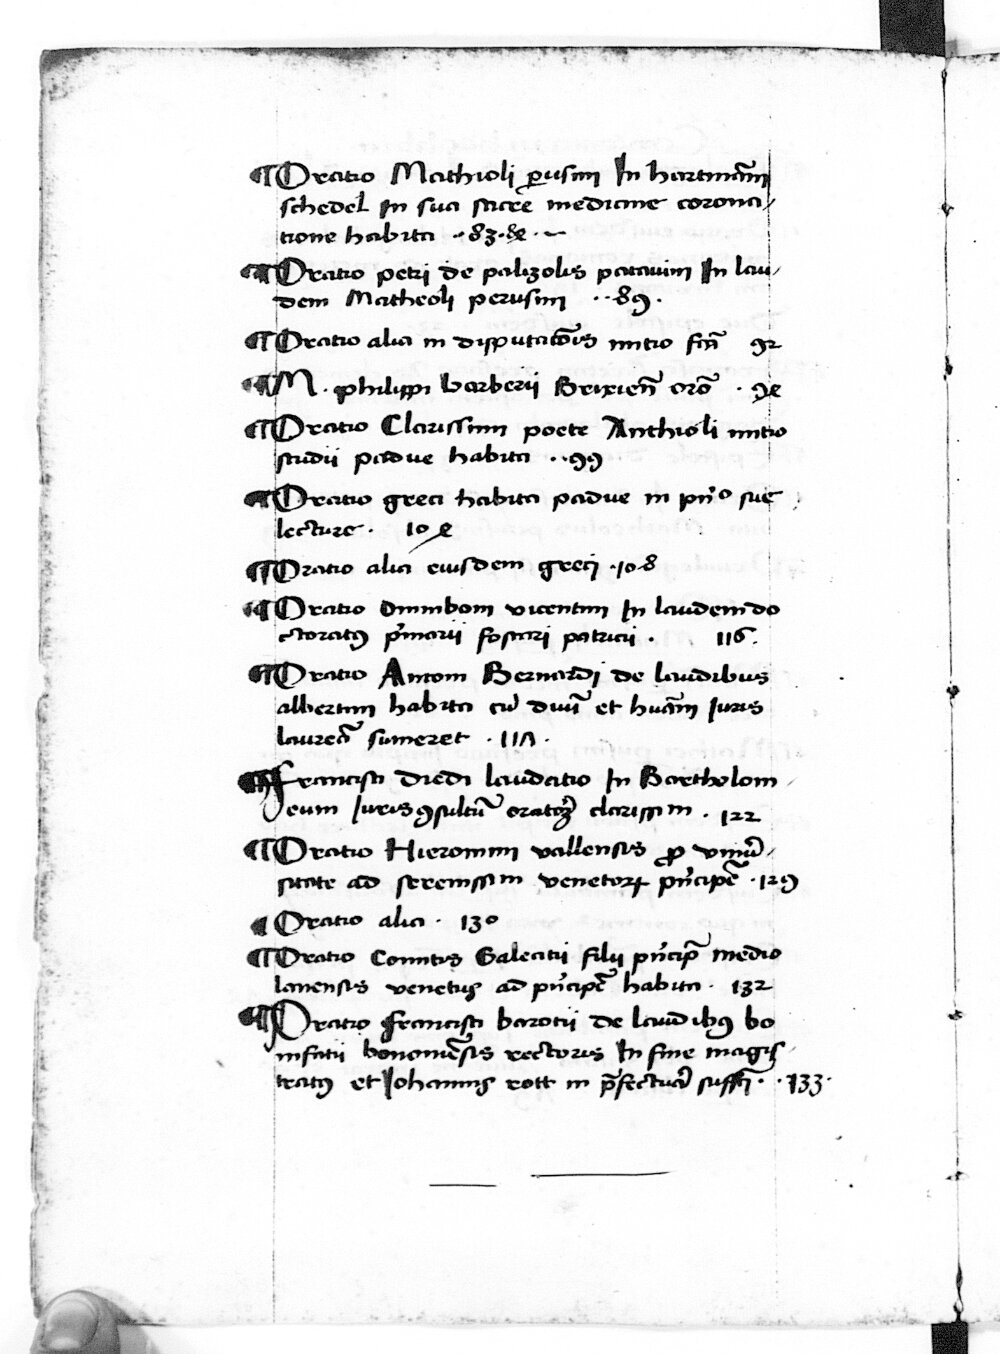 ¶ Oratio Mathioli perusini In hartmānū
schedel In sua sacrē medicine corona/
tione habita ..83.84.
¶ Oratio petri de palizolis patavini In lau/
dem Matheoli perusini ..89.
¶ Oratio alia in disputatiōīs initio fcā 92
¶ M. philippi barberii Brixieñ orō . 94
¶ Oratio Clarissimi poete Anthioli initio
studii padue habita ..99
¶ Oratio greci habita padue in pñº sue
lecture . 104
¶ Oratio alia eiusdem greci .108
¶ Oratio omniboni vicentini In laudem do
ctoratꝰ p̄marii foscari patricii . 116.
¶ Oratio Antoni Bernardi de laudibus
albertini habita cū diuī et huāni Juris
laureā sumeret .117.
¶ francisci diedi laudatio In Bartholom/
eum Juris ꝯsultū oratoꝝ clarissim . 122
¶ Oratio Hieronimi vallensis ꝓ vniū/
sitate ad sereniss̄im venetoꝝ pñcipē .129
¶ Oratio alia . 130
¶ Oratio Comitis Galeatii filii pñcipꝭ medio
lanensis venetus ad pñcipē habita . 132
¶ Oratio francisci barotii de laudibꝰ bo
nifatii bononiēsis rectoris In fine magis/
tratꝰ et Johannis rott in p̄fectuā suffi . .133.